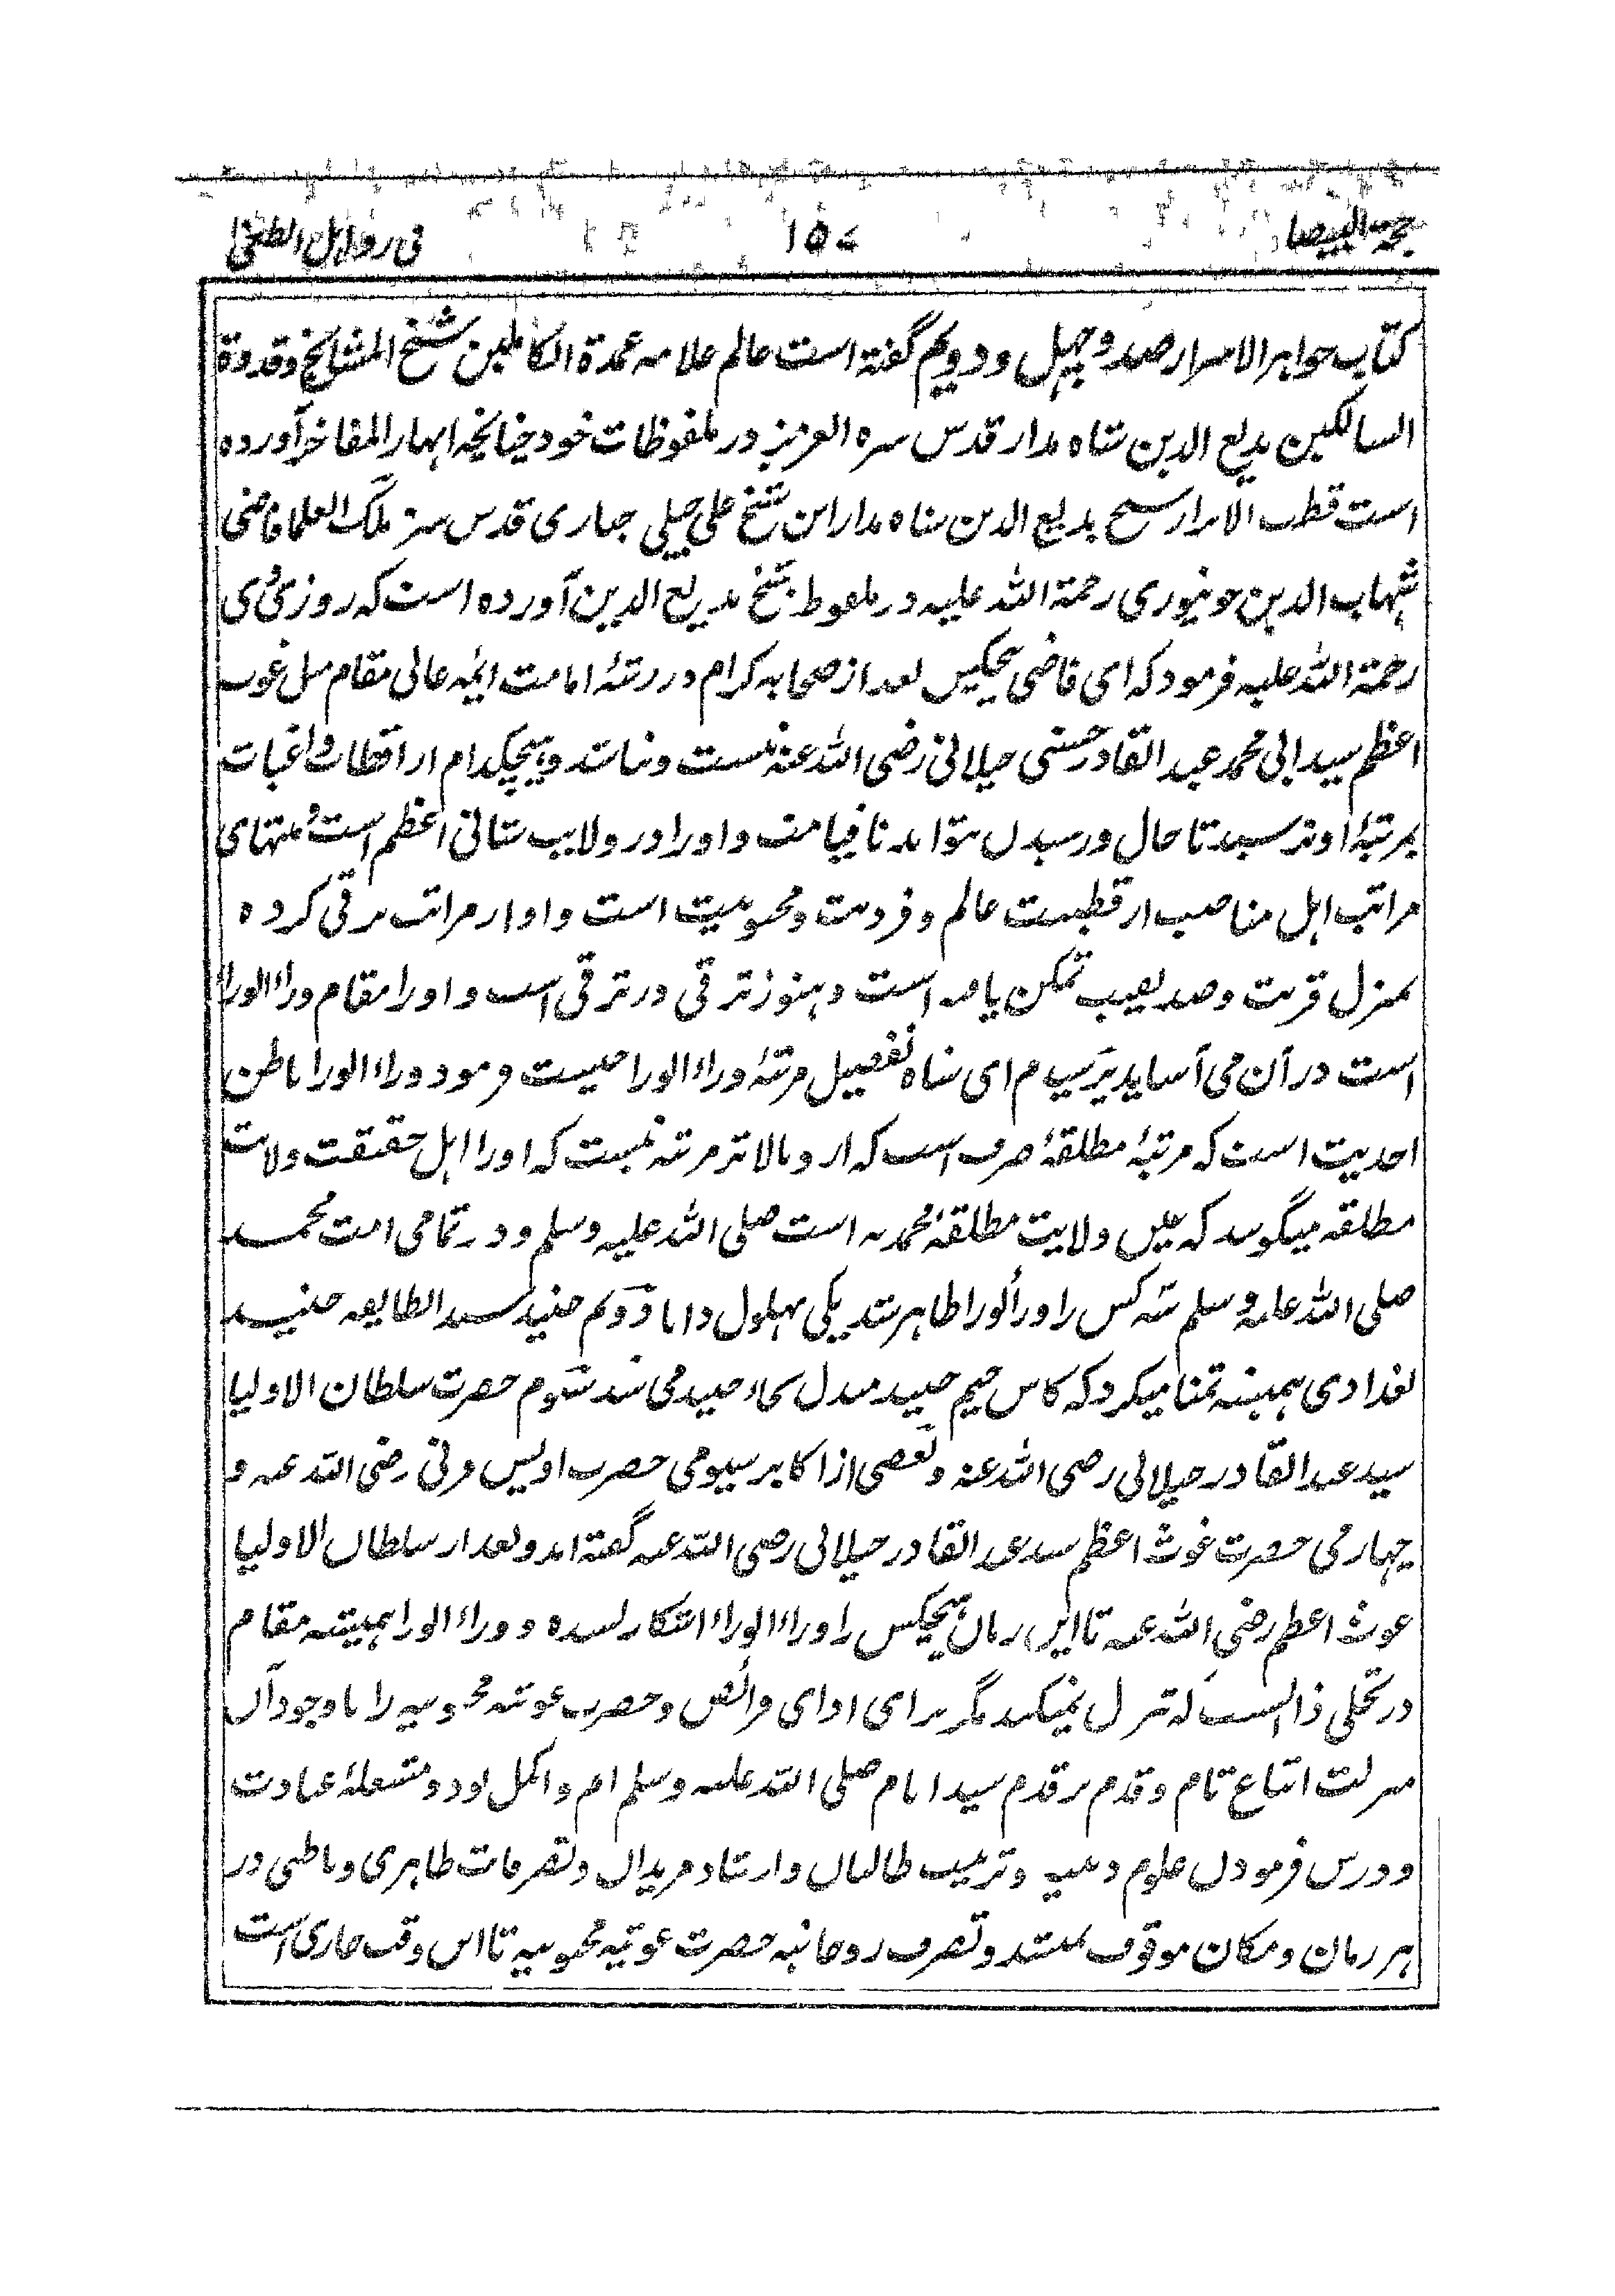 حجۃ البیضا ۱۵۷ فی رد اہل الطغیٰ
کتاب جواہر الاسرار صد و چہل و دویم گفتہ است عالم علامہ عمدۃ الکاملین شیخ المشایخ و قدوۃ
السالکین بدیع الدین شاہ مدار قدس سرہ العزیز در ملفوظات خود چنانچہ انہار المفاخر آوردہ
است قطب الابرار شیخ بدیع الدین شاہ مدار ابن شیخ علی حلبی قدس سرہ ملک العلما قاضی
شہاب الدین جونپوری رحمۃ اللہ علیہ در ملفوظ شیخ بدیع الدین آوردہ است کہ روزی وی
رحمۃ اللہ علیہ فرمود کہ ای قاضی ہیچکس بعد از صحابہ کرام در رتبۂ امامت ایمہ عالی مقام مثل غوث
اعظم سید ابی محمد عبد القادر حسنی جیلانی رضی اللہ عنہ نیست و نباشد و ہیچکدام از اقطاب و اغیاث
بمرتبۂ او نرسید تا حال و رسیدن نتواند تا قیامت و او را در ولایت شانی اعظم است منتہای
مراتب اہل مناصب از قطبیت عالم و فردیت و محبوبیت است و او از مراتب ترقی کردہ
بمنزل قربت و صدیقیت تمکن یافتہ است و ہنوز ترقی در ترقی است و او را مقام وراء الورا
است در آن می آساید پرسیدم ای شاہ تفصیل مرتبۂ وراء الورا چیست فرمود وراء الورا باطن
احدیت است کہ مرتبۂ مطلقۂ صرف است کہ از و بالاتر مرتبہ نیست کہ او را اہل حقیقت ولایت
مطلقہ میگویند کہ عین ولایت مطلقۂ محمدیہ است صلی اللہ علیہ وسلم و در تمامی امت محمد
صلی اللہ علیہ وسلم سہ کس را وراء الورا ظاہر شد یکی بہلول دانا دویم جنید سید الطایفہ جنید
بغدادی ہمیشہ تمنا میکرد کہ کاش جیم جنید مبدل بحاء حنید می شد سیوم حضرت سلطان الاولیا
سید عبد القادر جیلانی رضی اللہ عنہ و بعضی از اکابر سیومی حضرت اویس قرنی رضی اللہ عنہ و
چہارمی حضرت غوث اعظم سید عبد القادر جیلانی رضی اللہ عنہ گفتہ اند و بعد از سلطان الاولیا
غوث اعظم رضی اللہ عنہ تا این زمان ہیچکس را وراء الوراء آشکار نشدہ و وراء الورا ہمیشہ مقام
در تجلی ذاتست کہ تنزل نمیکند مگر برای ادای فرائض و حضرت غوثیہ محبوبیہ را باوجود آن
منزلت اتباع تام و قدم بر قدم سید انام صلی اللہ علیہ وسلم اتم و اکمل بود و مشغلۂ عبادت
و درس فرمودن علوم دینیہ و تربیت طالبان و ارشاد مریدان و تصرفات ظاہری و باطنی در
ہر زمان و مکان موقوف نمیشد و تصرف روحانیہ حضرت غوثیہ محبوبیہ تا این وقت جاری است